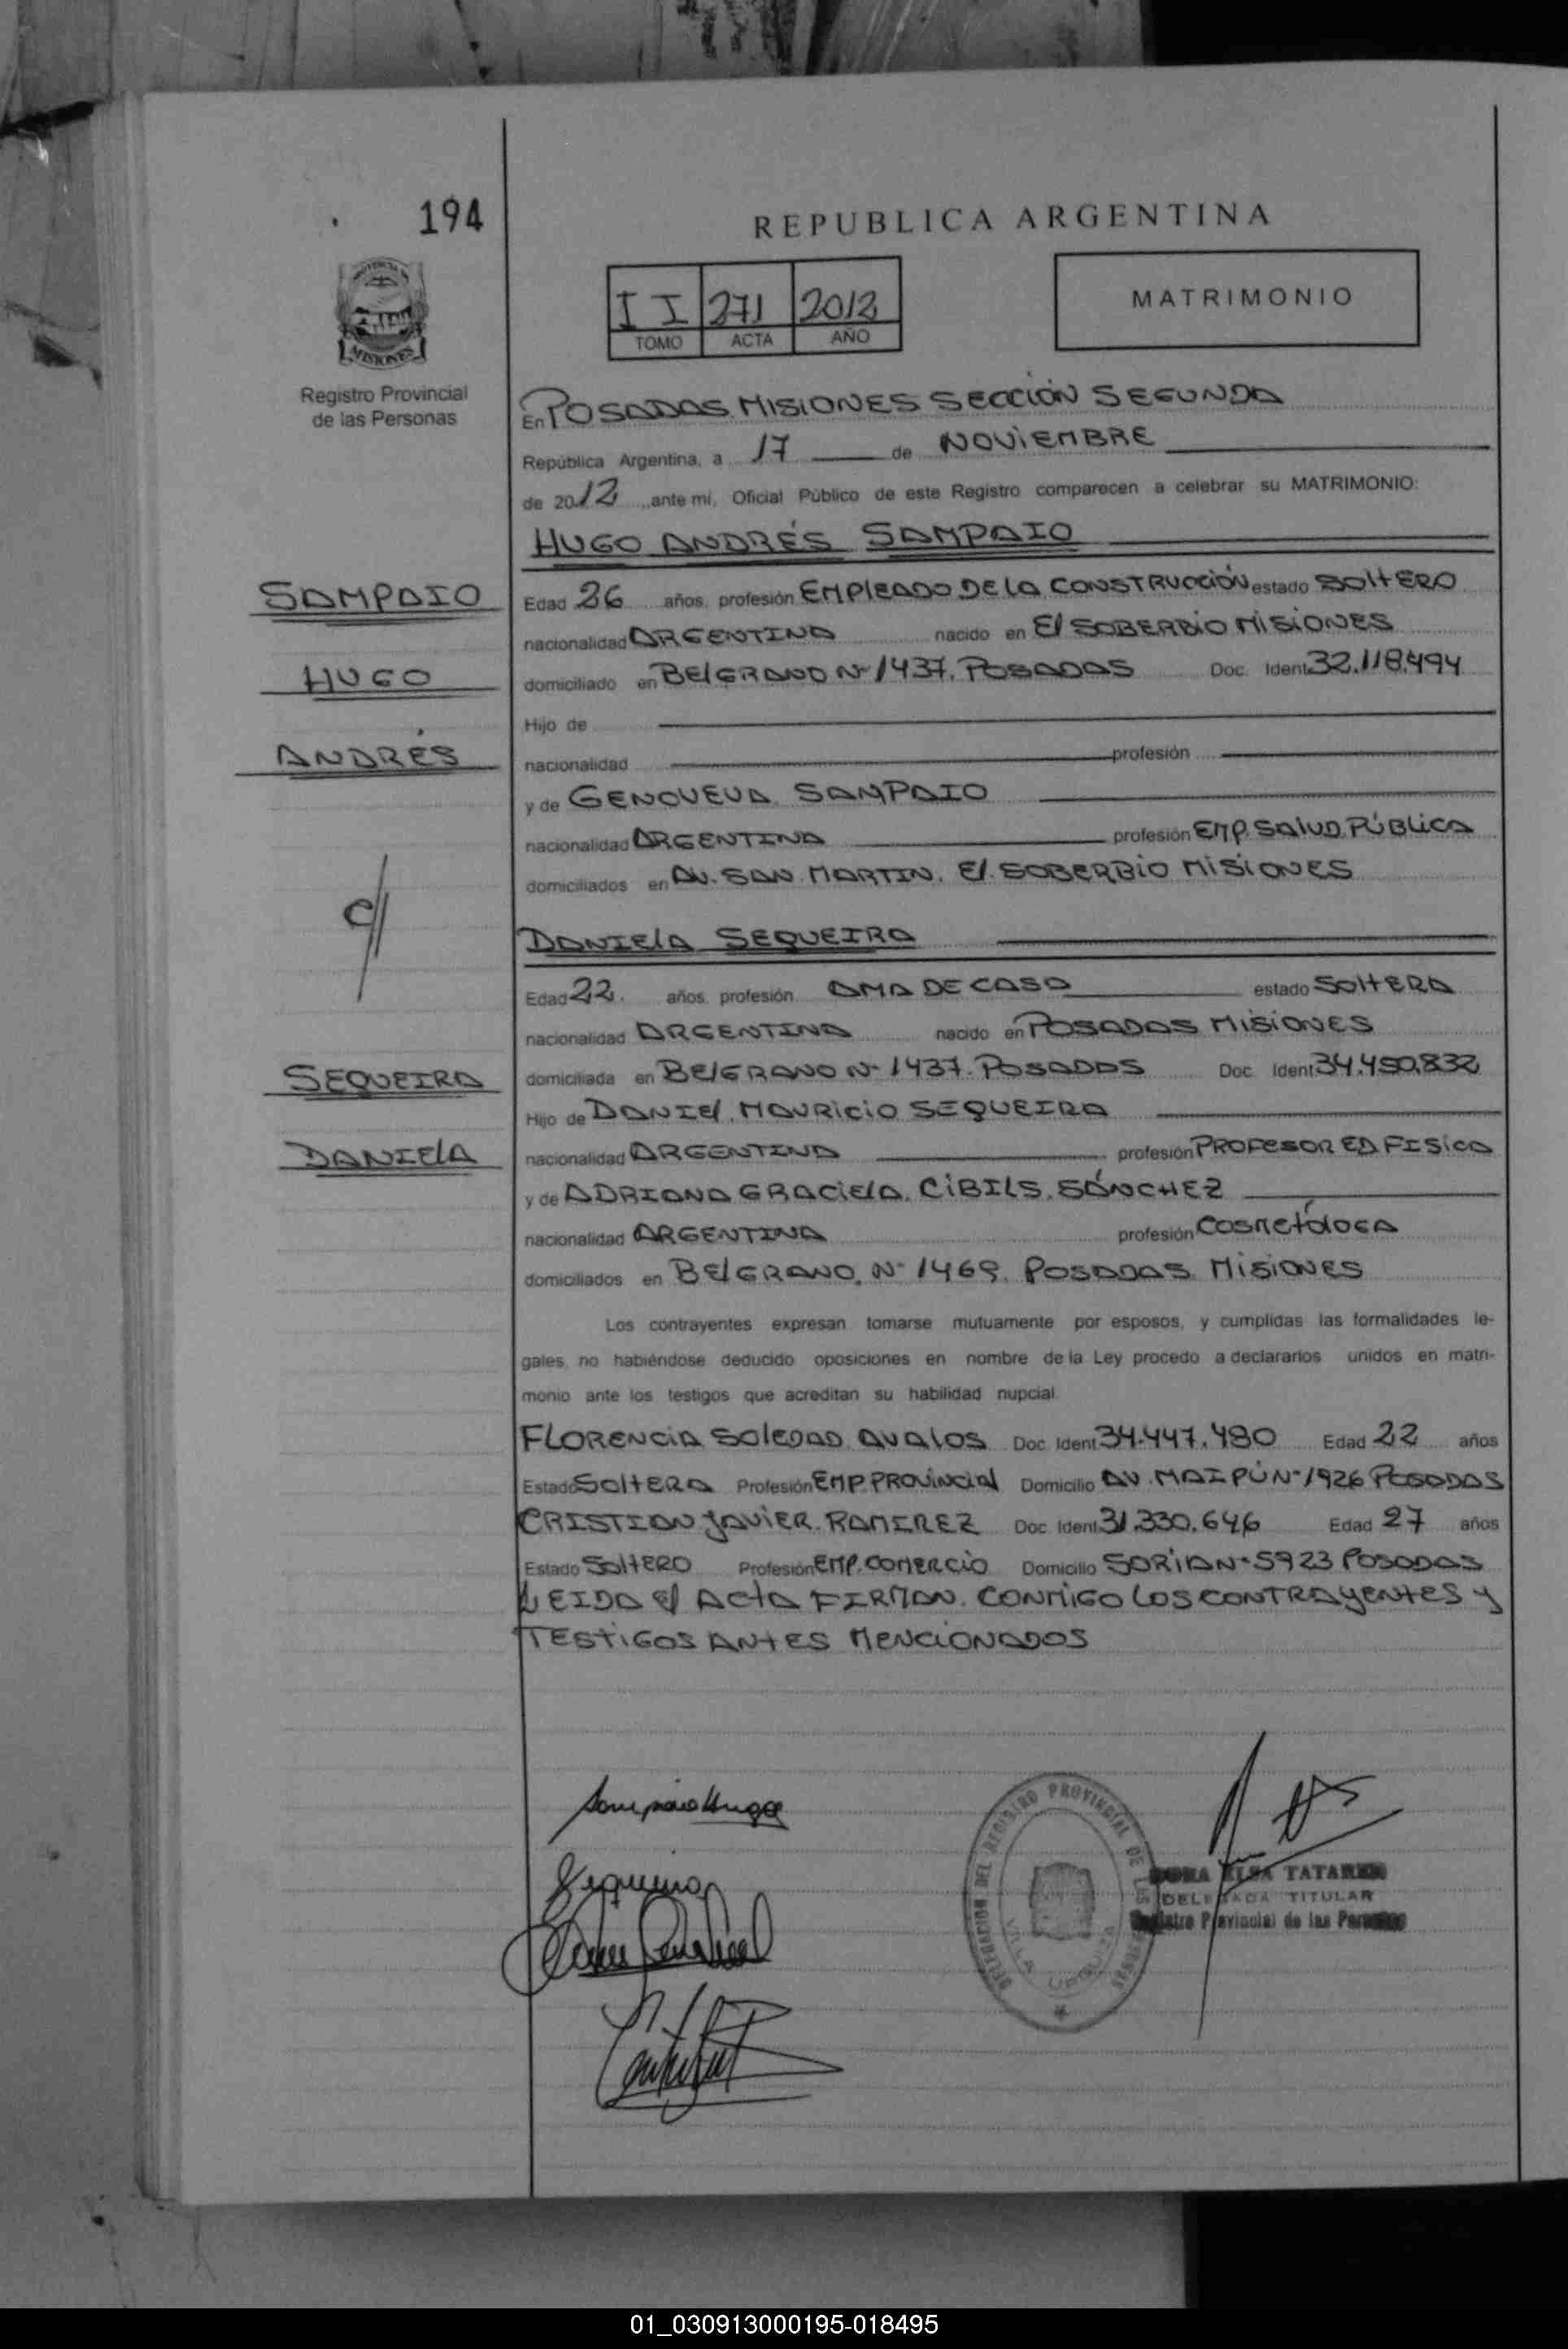 194
REPUBLICA ARGENTINA
II 271 2012
TOMO ACTA AÑO
MATRIMONIO
MISIONES
Registro Provincial
de las Personas
En POSADAS MISIONES SECCIÓN SEGUNDA
República Argentina, a 17 de NOVIEMBRE
de 2012, ante mi, Oficial Público de este Registro comparecen a celebrar su MATRIMONIO:
HUGO ANDRÉS SAMPAIO
SAMPAIO
Edad 26 años, profesión EMPLEADO DE LA CONSTRUCCIÓN estado SOLTERO
nacionalidad ARGENTINA nacido en El SOBERBIO MISIONES
HUGO
domiciliado en BELGRANO Nº 1437. POSADAS Doc. Ident 32.118.494
Hijo de
ANDRÉS
nacionalidad profesión
y de GENOVEVA SAMPAIO
nacionalidad ARGENTINA profesión EMP. SALUD PÚBLICA
domiciliados en AV. SAN MARTIN. El SOBERBIO MISIONES
DANIELA SEQUEIRA
Edad 22. años, profesión AMA DE CASA estado SOLTERA
nacionalidad ARGENTINA nacido en POSADAS MISIONES
SEQUEIRA
domiciliada en BELGRANO Nº 1437. POSADAS Doc. Ident 34.450.832
Hijo de DANIEL MAURICIO SEQUEIRA
DANIELA
nacionalidad ARGENTINA profesión PROFESOR ED FISICA
y de ADRIANA GRACIELA CIBILS SÁNCHEZ
nacionalidad ARGENTINA profesión COSMETÓLOGA
domiciliados en BELGRANO Nº 1469. POSADAS MISIONES
Los contrayentes expresan tomarse mutuamente por esposos, y cumplidas las formalidades le-
gales no habiéndose deducido oposiciones en nombre de la Ley procedo a declararlos unidos en matri-
monio ante los testigos que acreditan su habilidad nupcial.
FLORENCIA SOLEDAD AVALOS Doc. Ident 34.447.480 Edad 22 años
Estado SOLTERA Profesión EMP. PROVINCIAL Domicilio AV. MAIPÚ Nº 1926 POSADAS
CRISTIAN JAVIER RAMIREZ Doc. Ident 31.330.646 Edad 27 años
Estado SOLTERO Profesión EMP. COMERCIO Domicilio SORIA Nº 5923 POSADAS
LEIDA El ACTA FIRMAN CONMIGO LOS CONTRAYENTES Y
TESTIGOS ANTES MENCIONADOS
Sampaio Hugo
Sequeira
DELEGACION DEL REGISTRO PROVINCIAL DE LAS
VILLA URQUIZA
ELSA
DELEGADA TITULAR
Registro Provincial de las Personas
01_030913000195-018495